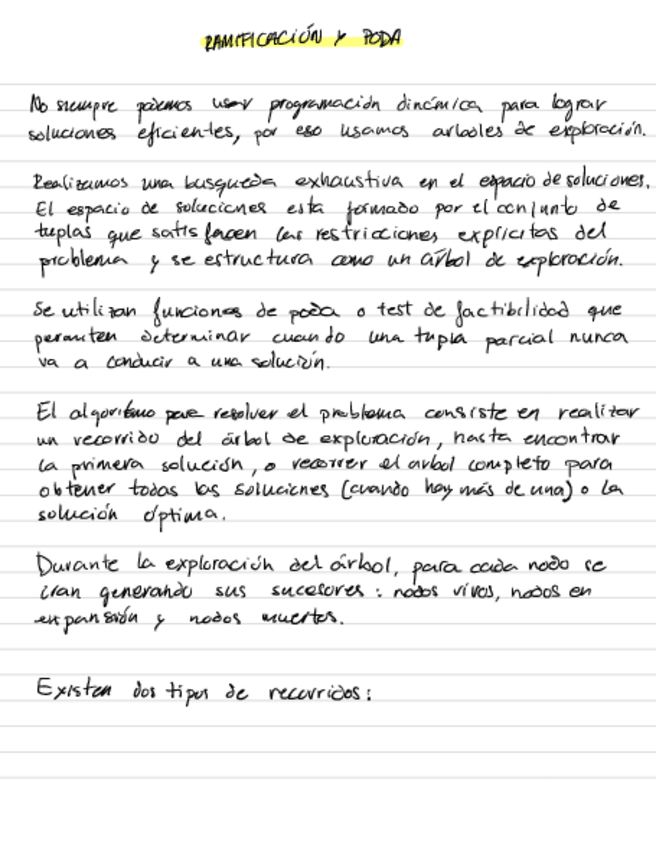 RAMIFICACIÓN Y PODA
No siempre podemos usar programación dinámica para lograr
soluciones eficientes, por eso usamos arboles de exploración.
Realizamos una busqueda exhaustiva en el espacio de soluciones.
El espacio de soluciones esta formado por el conjunto de
tuplas que satisfacen las restricciones explícitas del
problema y se estructura como un árbol de exploración.
Se utilizan funciones de poda o test de factibilidad que
permiten determinar cuando una tupla parcial nunca
va a conducir a una solución.
El algoritmo para resolver el problema consiste en realizar
un recorrido del árbol de exploración, hasta encontrar
la primera solución, o recorrer el arbol completo para
obtener todas las soluciones (cuando hay más de una) o la
solución óptima.
Durante la exploración del árbol, para cada nodo se
iran generando sus sucesores: nodos vivos, nodos en
expansión y nodos muertos.
Existen dos tipos de recorridos: